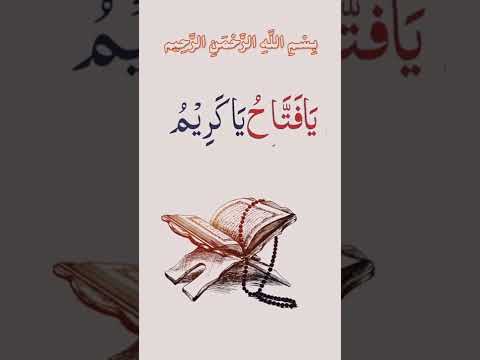 بِسْمِ اللَّهِ الرَّحْمَنِ الرَّحِيمِ
يَا فَتَّاحُ يَا كَرِيْمُ